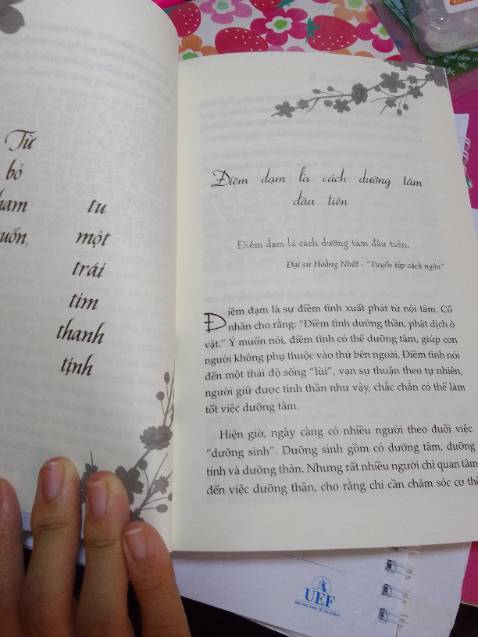 Từ
bỏ
ham
muốn,
tu
một
trái
tim
thanh
tịnh
Điềm đạm là cách dưỡng tâm
đầu tiên
Điềm đạm là cách dưỡng tâm đầu tiên.
Đại sư Hoằng Nhất - "Tuyển tập cách ngôn"
Điềm đạm là sự điềm tĩnh xuất phát từ nội tâm. Cổ
nhân cho rằng: "Điềm tĩnh dưỡng thần, phật dịch ô
vật." Ý muốn nói, điềm tĩnh có thể dưỡng tâm, giúp con
người không phụ thuộc vào thứ bên ngoài. Điềm tĩnh nói
đến một thái độ sống "lùi", vạn sự thuận theo tự nhiên,
người giữ được tinh thần như vậy, chắc chắn có thể làm
tốt việc dưỡng tâm.
Hiện giờ, ngày càng có nhiều người theo đuổi việc
"dưỡng sinh". Dưỡng sinh gồm có dưỡng tâm, dưỡng
tính và dưỡng thân. Nhưng rất nhiều người chỉ quan tâm
đến việc dưỡng thân, cho rằng chỉ cần chăm sóc cơ thể
UEF